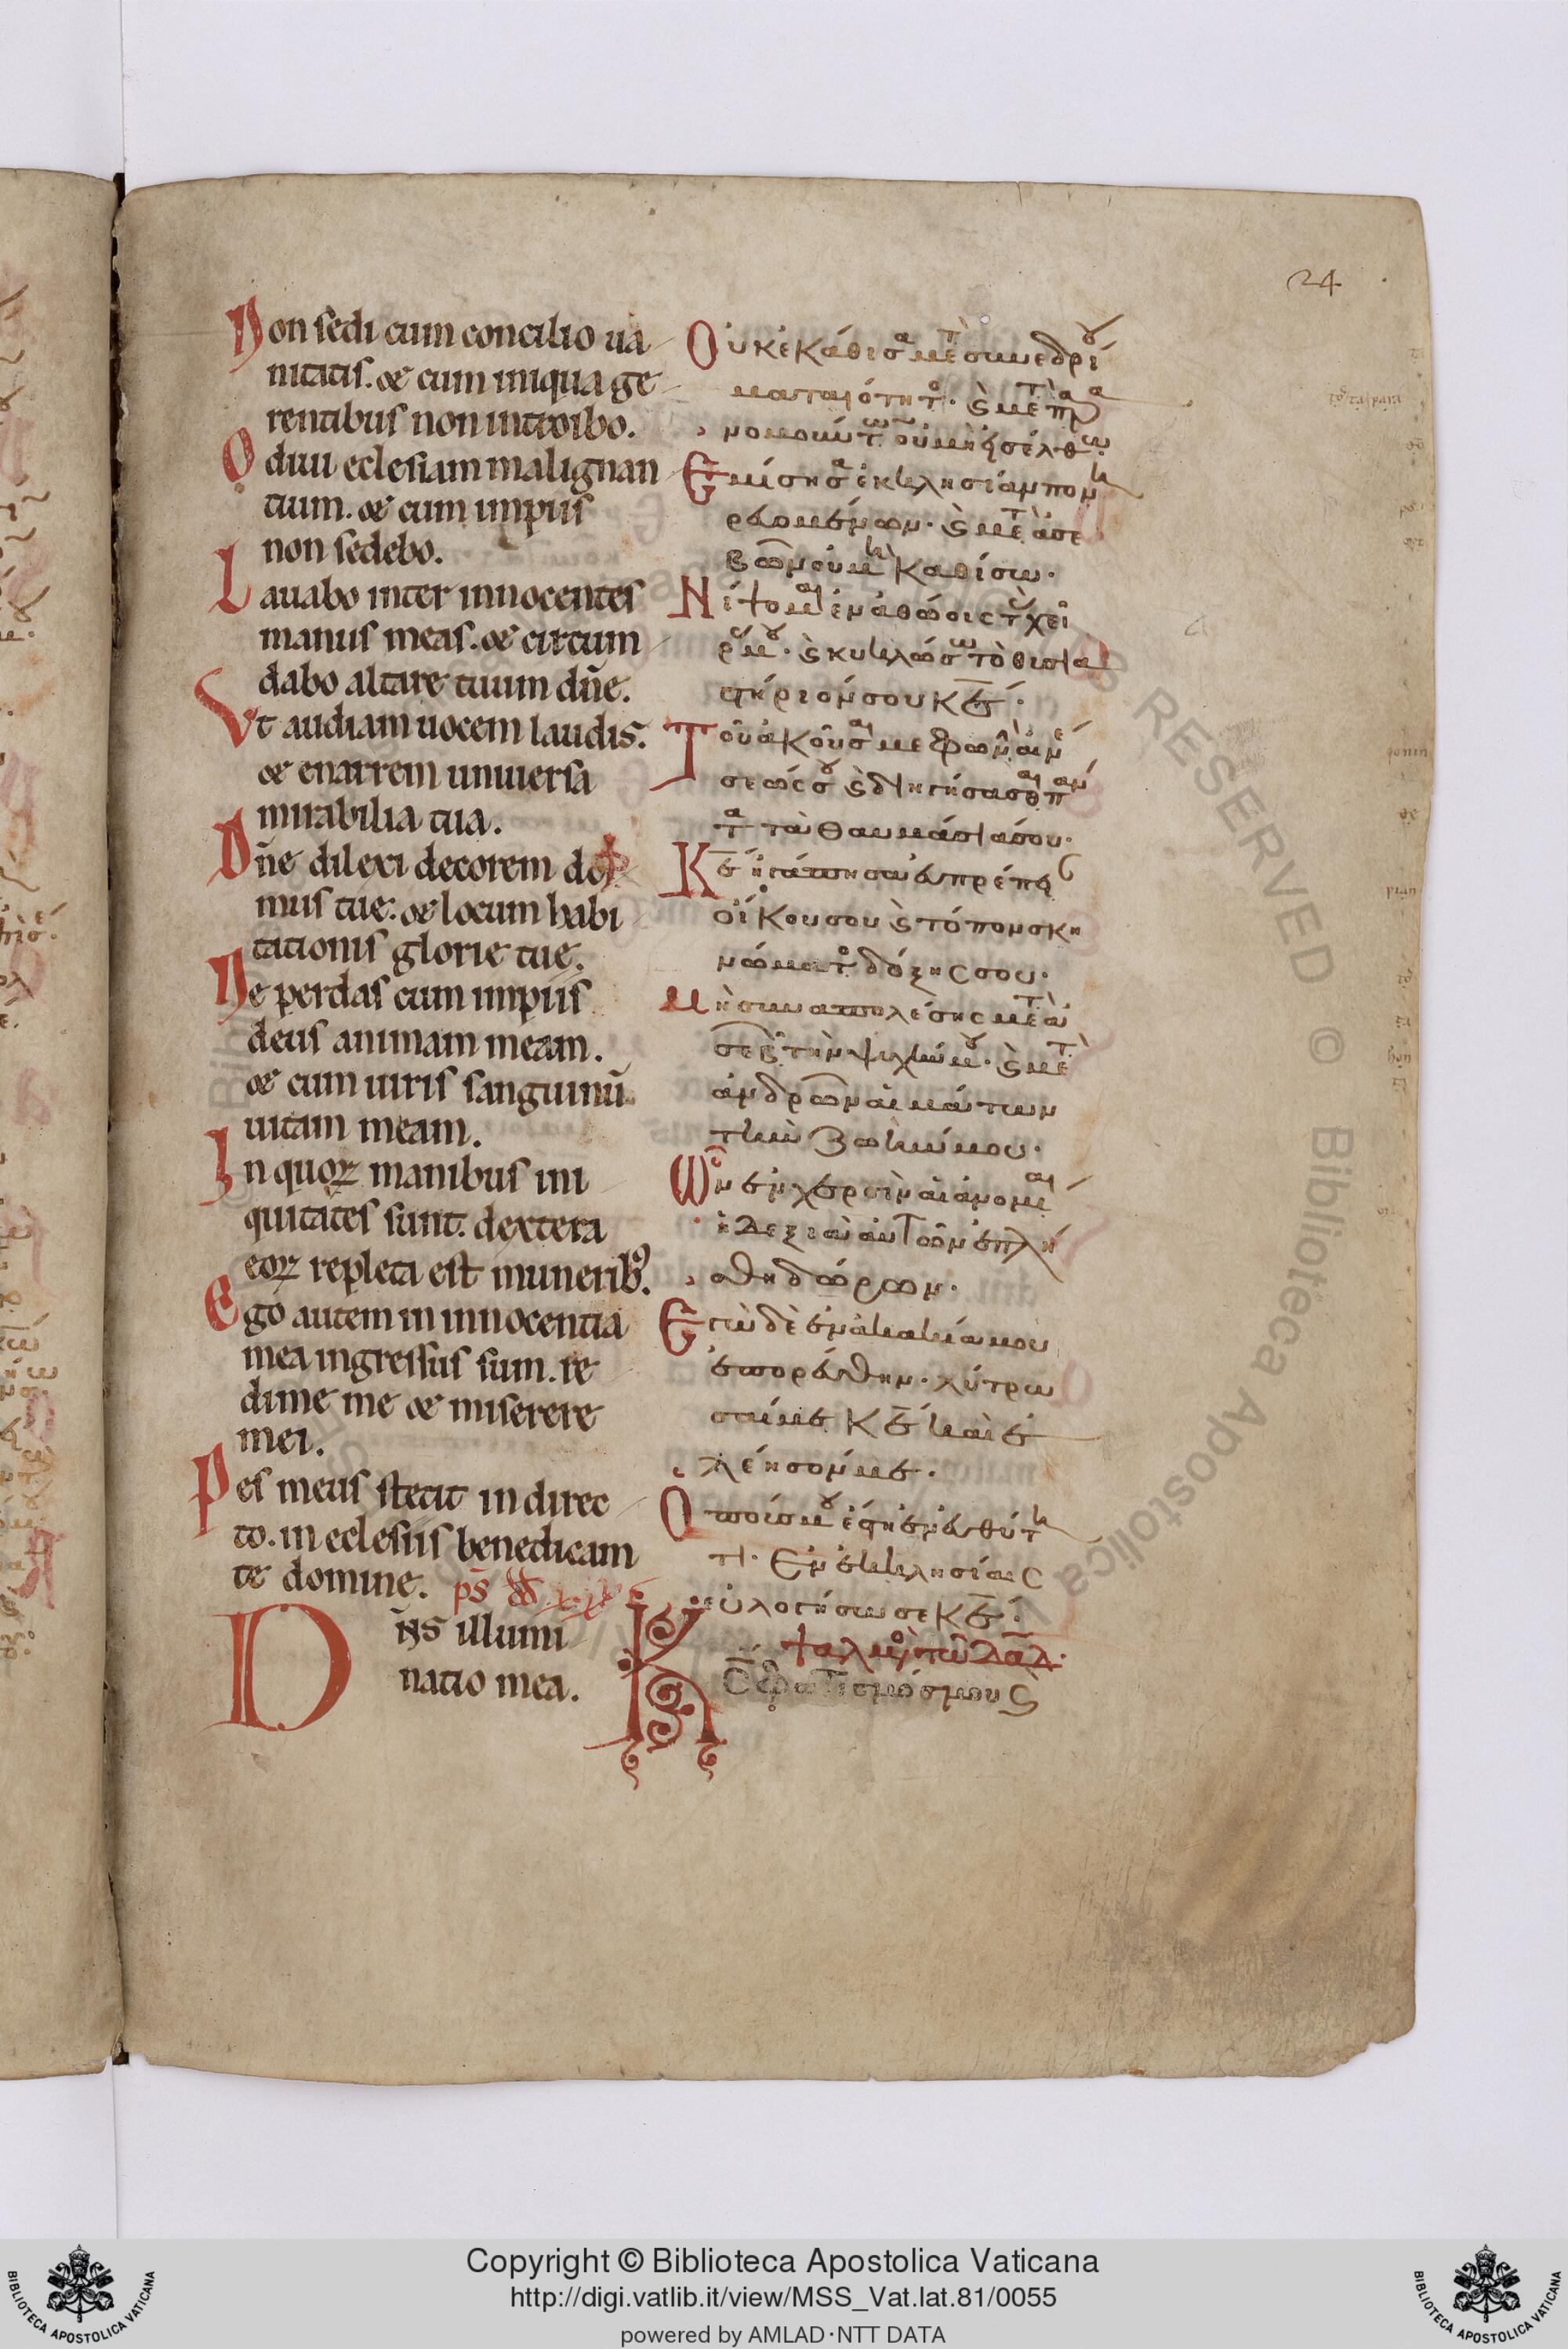 24
Non sedi cum concilio ua
nitatis. & cum iniqua ge
rentibus non introibo.
Odiui eclesiam malignan
tium. & cum impiis
non sedebo.
Lauabo inter innocentes
manus meas. & circum
dabo altare tuum dñe.
Vt audiam uocem laudis.
& enarrem uniuersa
mirabilia tua.
Dñe dilexi decorem do
mus tue: & locum habi
tationis glorie tue.
Ne perdas cum impiis
deus animam meam.
& cum uiris sanguinū
uitam meam.
In quoꝝ manibus ini
quitates sunt. dextera
eoꝝ repleta est munerib⁹.
Ego autem in innocentia
mea ingressus sum. re
dime me & miserere
mei.
Pes meus stetit in direc
to. in eclesiis benedicam
te domine. ps̄
Dñs illumi
natio mea.
Οὐκ ἐκάθισα μετὰ συνεδρίου
ματαιότητο. ϛ μετὰ πα
νομούντων οὐ μὴ εἰσέλθω.
Ἐμίσησα ἐκκλησίαν πον
ρευομένων. ϛ μετὰ ἀσε
βῶν οὐ μὴ καθίσω.
Νίψομαι ἐν ἀθώοις τὰς χεῖ
ρας μου. ϛ κυκλώσω τὸ θυσια
στήριόν σου κε̄.
Τοῦ ἀκοῦσαι με φωνὴν αἰνέ
σεώς σου ϛ διηγήσασθαι παν
τα τὰ θαυμάσιά σου.
Κε̄ ἠγάπησα εὐπρέπει
οἴκου σου ϛ τόπον σκη
νώματο δόξης σου.
Μὴ συναπολέσης μετὰ ἀ
σεβῶν τὴν ψυχήν μου. ϛ μετὰ
ἀνδρῶν αἱμάτων
τὴν ζωήν μου.
Ὧν ἐν χερσὶν αἱ ἀνομίαι
ἡ δεξιὰ αὐτῶν ἐπλή
σθη δώρων.
Ἐγὼ δὲ ἐν ἀκακία μου
ἐπορεύθην. λύτρω
σαί με κε̄ καὶ ἐ
λέησόν με.
Ὁ ποῦς μου ἔστη ἐν εὐθύτη
τι. Ἐν ἐκκλησίαις
εὐλογήσω σε κε̄.
ψαλμὸ τῶ δαδ.
Κ̄Σ φωτισμός μου ϛ
Copyright © Biblioteca Apostolica Vaticana
http://digi.vatlib.it/view/MSS_Vat.lat.81/0055
powered by AMLAD·NTT DATA